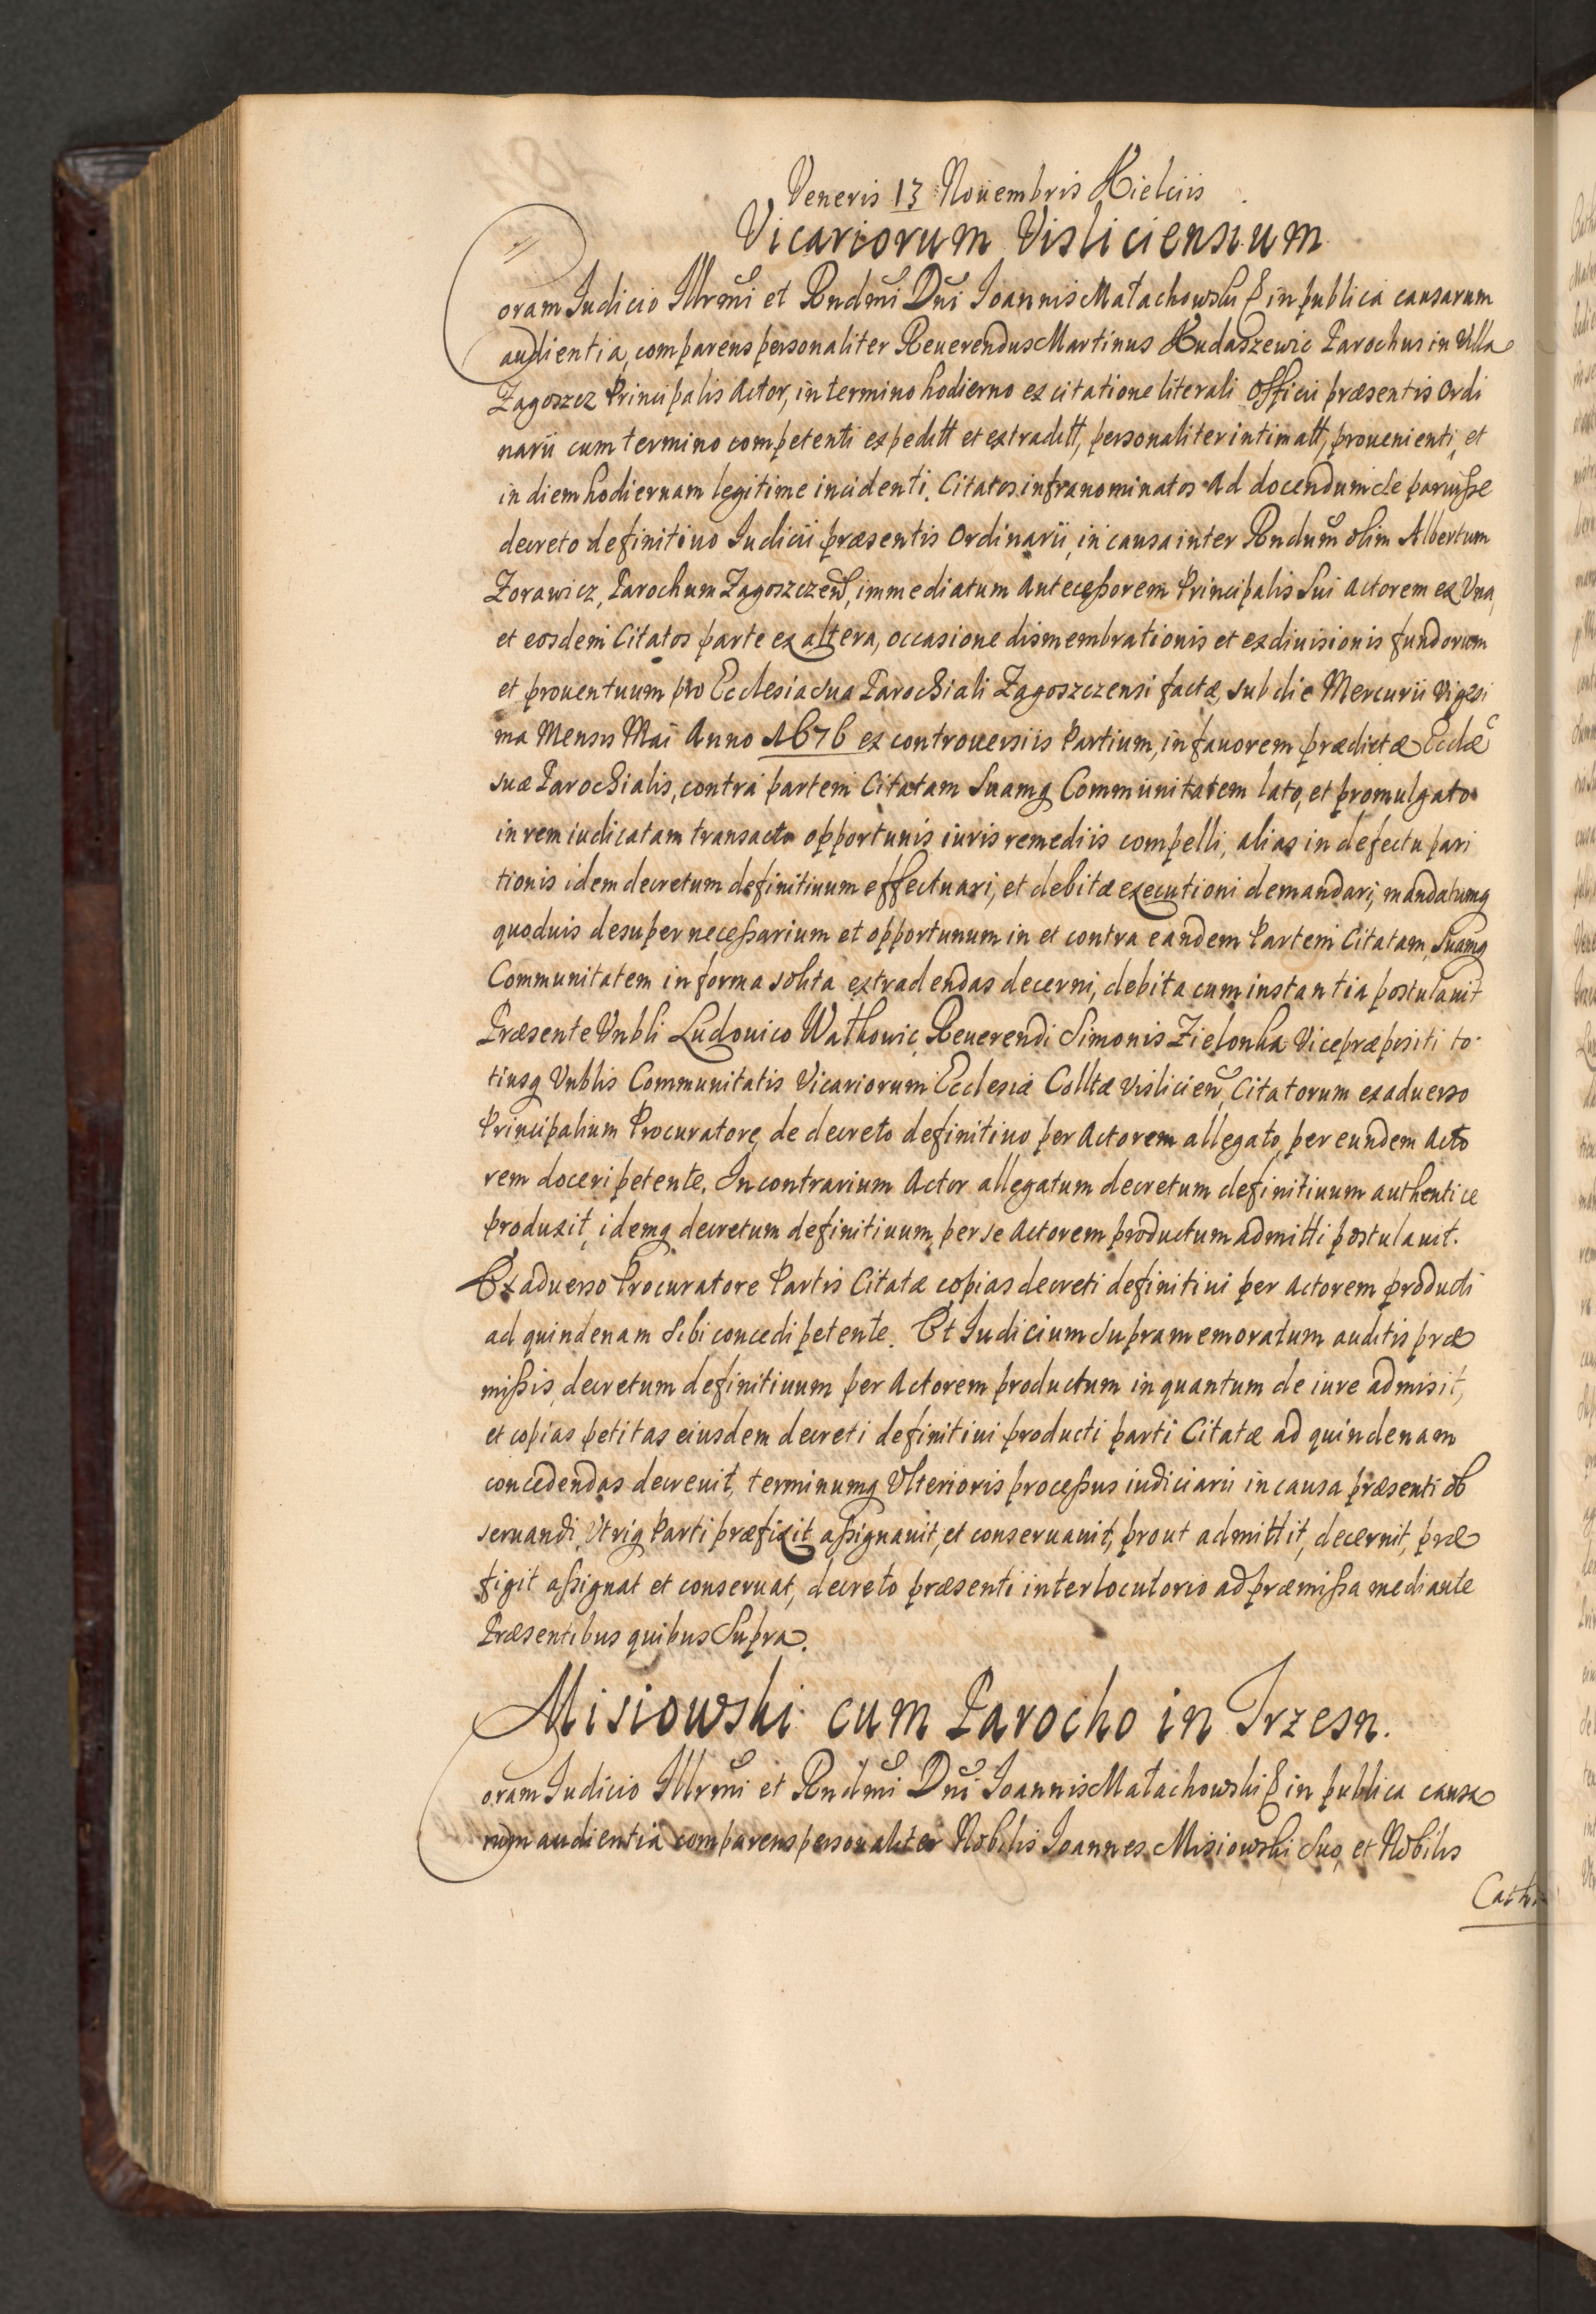 Veneris 13 Nouembris Kielciis
Vicariorum Visliciensium
Coram Iudicio Illrmi et Rndmi Dni Ioannis Małachowski & in publica causarum
audientia, comparens personaliter Reuerendus Martinus Rudaszewic Parochus in Villa
Zagoszcz Principalis Actor, in termino hodierno ex citatione literali Officii præsentis Ordi
narii cum termino competenti expeditt et extraditt, personaliter intimatt, prouenienti, et
in diem hodiernam legitime incidenti. Citatos infranominatos Ad docendum de paruisse
decreto definitiuo Iudicii præsentis Ordinarii, in causa inter Rndum olim Albertum
Zorawicz, Parochum Zagoszczen, immediatum Antecessorem Principalis Sui Actorem ex Vna,
et eosdem Citatos parte ex altera, occasione dismembrationis et exdiuisionis fundorum
et prouentuum pro Ecclesia sua Parochiali Zagoszczensi factæ, sub die Mercurii Vigesi
ma Mensis Mai Anno 1676 ex controuersiis Partium, in fauorem prædictæ Ecclæ
suæ Parochialis, contra partem Citatam Suamq Communitatem lato, et promulgato
in rem iudicatam transacto opportunis iuris remediis compelli, alias in defectu pari
tionis idem decretum definitiuum effectuari, et debitæ executioni demandari, mandatumq
quoduis desuper necessarium et opportunum in et contra eandem Partem Citatam, Suamq
Communitatem in forma solita extradendas decerni, debita cum instantia postulauit
Præsente Vnbli Ludouico Wathowic, Reuerendi Simonis Zielonka Vicepræpositi to
tiusq Vnblis Communitatis Vicariorum Ecclesiæ Colltæ Vislicien, Citatorum exaduerso
Principalium Procuratore, de decreto definitiuo per Actorem allegato, per eundem Acto
rem doceri petente. In contrarium Actor allegatum decretum definitiuum authentice
produxit, idemq decretum definitiuum per se Actorem productum admitti postulauit.
Exaduerso Procuratore Partis Citatæ copias decreti definitiui per Actorem producti
ad quindenam sibi concedi petente. Et Iudicium Supramemoratum auditis præ
missis, decretum definitiuum per Actorem productum in quantum de iure admisit,
et copias petitas eiusdem decreti definitiui producti parti Citatæ ad quindenam
concedendas decreuit, terminumq Vlterioris processus iudiciarii in causa præsenti ob
seruandi, Vtriq Parti præfixit assignauit, et conseruauit, prout admittit, decernit, præ
figit assignat et conseruat, decreto præsenti interlocutorio ad præmissa mediante
Præsentibus quibus Supra.
Misiowski cum Parocho in Trzesn.
Coram Iudicio Illrmi et Rndmi Dni Ioannis Małachowski & in publica causa
rum audientia comparens personaliter Nobilis Ioannes Misiowski Suo, et Nobilis
Cath